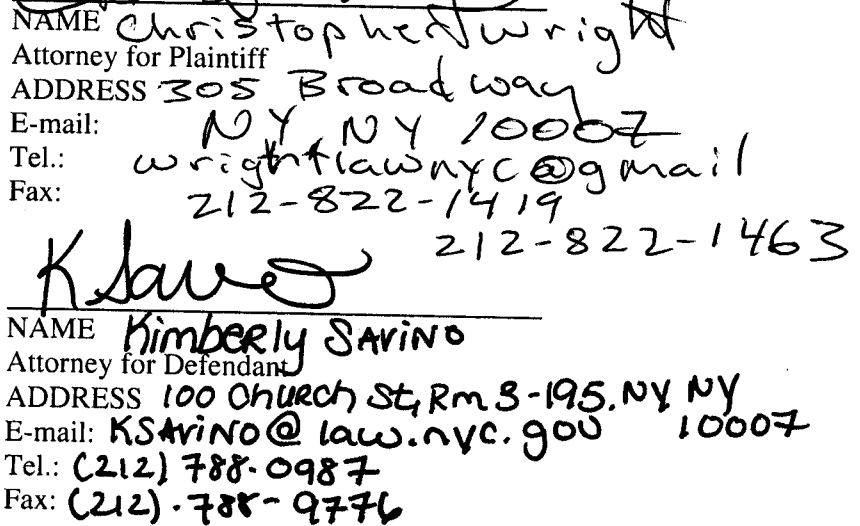 NAME Christopher Wright
Attorney for Plaintiff
ADDRESS 305 Broadway
E-mail: NY NY 10007
Tel.: wrightlawnyc@gmail
Fax: 212-822-1419
212-822-1463
K Savino
NAME Kimberly SAViNO
Attorney for Defendant
ADDRESS 100 ChURCh St, Rm 3-195. NY NY
E-mail: KSAViNO@law.nyc.gov 10007
Tel.: (212) 788-0987
Fax: (212)-788-9776